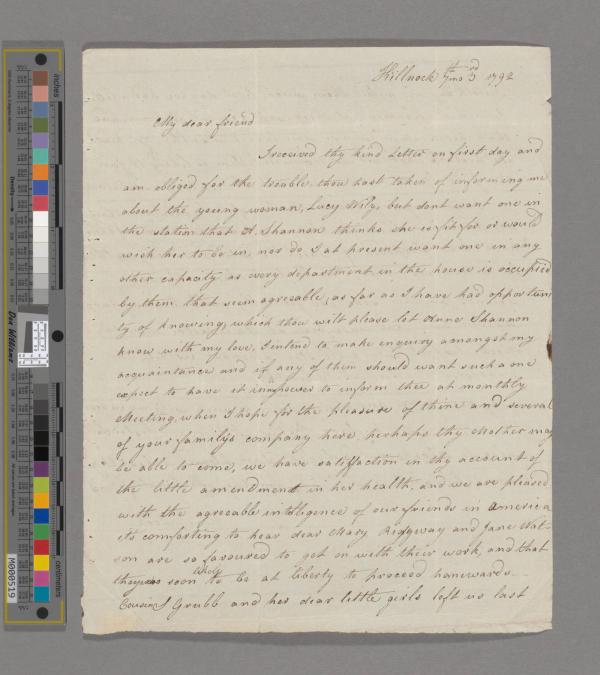 Killnock 7th mo 3rd 1792
My dear friend
I received thy kind Letter on first day and
am obliged for the trouble thou hast taken of informing me
about the young woman, Lucy Wily, but dont want one in
the station that A. Shannon thinks she is fit for or would
wish her to be in, nor do I at present want one in any
other capacity as every department in the house is occupied
by them that seem agreeable, as far as I have had opportuni
ty of knowing, which thou wilt please let Anne Shannon
know with my love, I intend to make enquiry amongst my
acquaintance and if any of them should want such a one
expect to have it in my power to inform thee at monthly
Meeting, when I hope for the pleasure of thine and several
of your family's company here perhaps thy Mother may
be able to come, we have satisfaction in thy account of
the little amendment in her health, and we are pleased
with the agreeable intelligence of our friends in America
its comforting to hear dear Mary Ridgway and Jane Wat-
son are so favoured to get on with their work, and that
they soon to be at liberty to proceed homewards
Cousin S Grubb and her dear little girls left us last
One Williams
inches
centimeters
Density
M000519